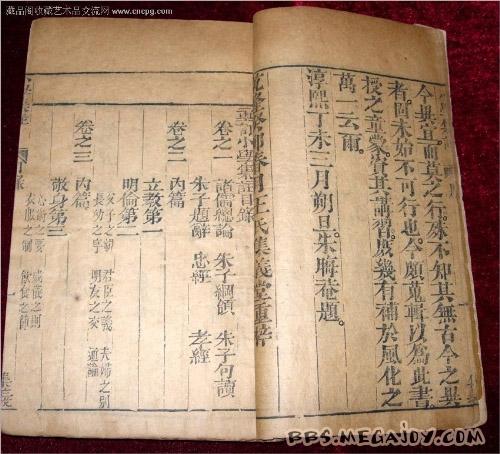 藏品阁收藏艺术品交流网 www.cncpg.com
今異宜而莫之行。殊不知其無古今之異
者。固未始不可行也。今頗蒐輯以為此書。
授之童蒙資其講習。庶幾有補於風化之
萬一云爾。
淳熙丁未三月朔旦。朱晦菴題。
王氏集義堂重梓
目錄
卷之一 諸儒總論 朱子綱領 朱子句讀
朱子題辭 忠經 孝經
卷之二 內篇
立教第一
明倫第二
父子之親 君臣之義 夫婦之別
長幼之序 朋友之交 通論
卷之三 內篇
敬身第三
心術之要 威儀之則
衣服之制 飲食之節
BBS.MEGAJOY.COM